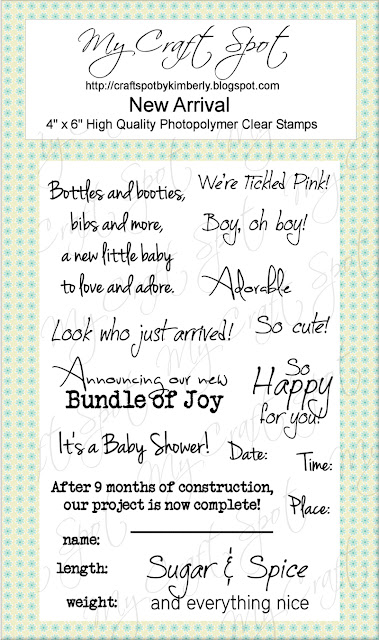 My Craft Spot
http://craftspotbykimberly.blogspot.com
New Arrival
4" x 6" High Quality Photopolymer Clear Stamps
Bottles and booties,
bibs and more,
a new little baby
to love and adore.
We're Tickled Pink!
Boy, oh boy!
Adorable
Look who just arrived!
So cute!
Announcing our new
Bundle of Joy
So
Happy
for you!
It's a Baby Shower!
Date:
Time:
Place:
After 9 months of construction,
our project is now complete!
name:
length:
weight:
Sugar & Spice
and everything nice